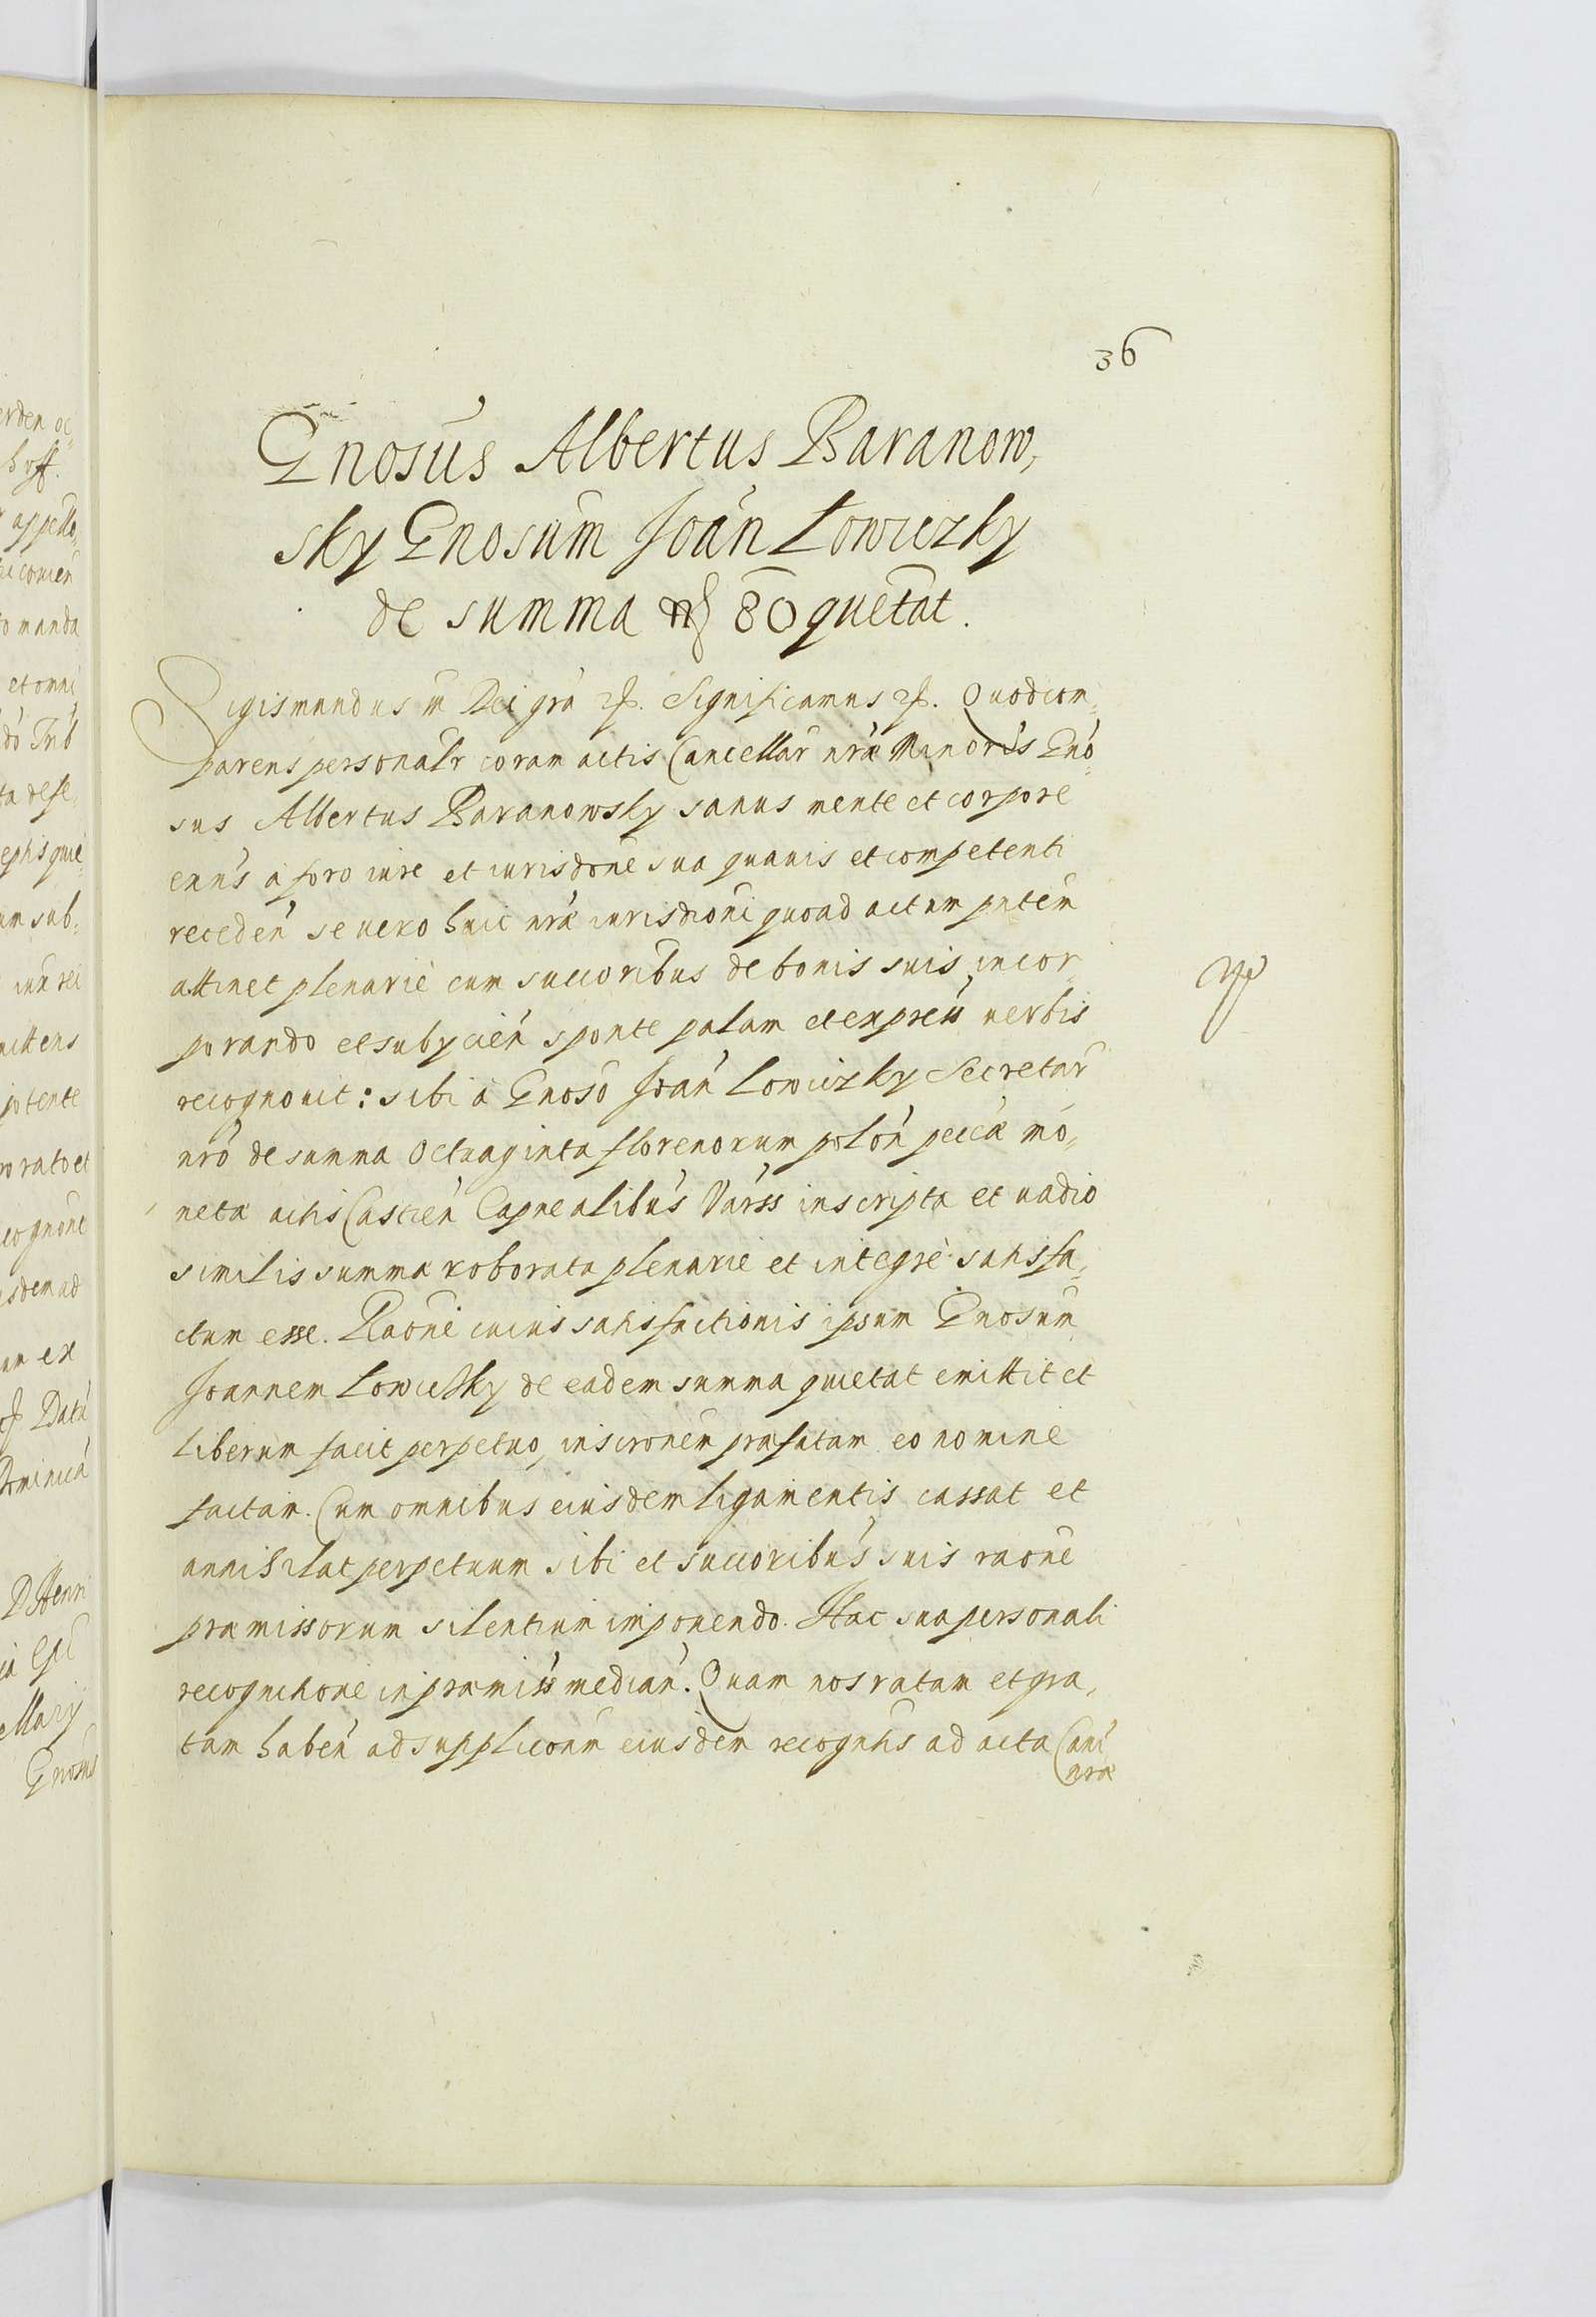 36
Gnosus Albertus Baranow,
sky Gnosum Joan Lowiczky
de summa 80 quetat.
Sigismundus III Dei gra Significamus Quod com,
parens personalr coram actis Cancellar nræ Minoris Gno,
sus Albertus Baranowsky sanus mente et corpore
exns a foro iure et iurisdone sua quauis et competenti
receden se uero huic nræ iurisdioni quoad actum pntem
attinet plenarie cum succoribus de bonis suis incor
porando et subycien sponte palam et express uerbis
recognouit: sibi a Gnoso Joan Lowiczky Secretar
nro de summa Octuaginta florenorum polon pecæ mo,
netæ actis Castren Capnealibus Varss inscripta et uadio
similis summæ roborata plenarie et integre satisfa,
ctum esse. Raone cuius satisfactionis ipsum Gnosum
Joannem Lowiczky de eadem summa quietat emittit et
liberum facit perpetuo, inscronem præfatam eo nomine
factam. Cum omnibus eiusdem ligamentis cassat et
annihilat perpetuum sibi et succoribus suis raone
præmissorum silentium imponendo. Hac sua personali
recognitione in præmiss median. Quam nos ratam et gra,
tam haben ad supplicom eiusdem recogntis ad acta Canc
nræ